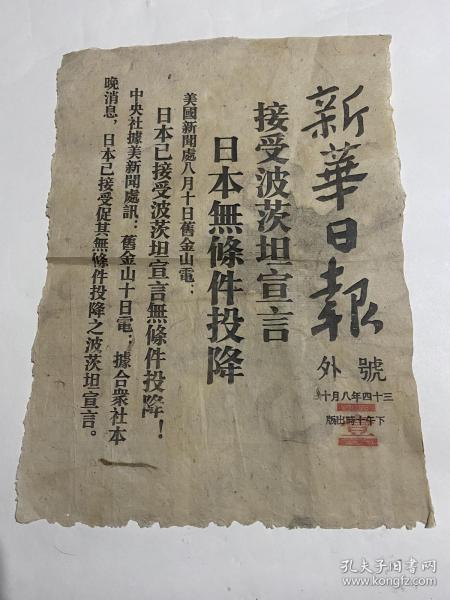 新華日報
號外
三十四年八月十
下午十時出版
接受波茨坦宣言
日本無條件投降
美國新聞處八月十日舊金山電：
日本已接受波茨坦宣言無條件投降！
中央社據美新聞處訊：舊金山十日電；據合衆社本
晚消息，日本已接受促其無條件投降之波茨坦宣言。
孔夫子旧书网
www.kongfz.com